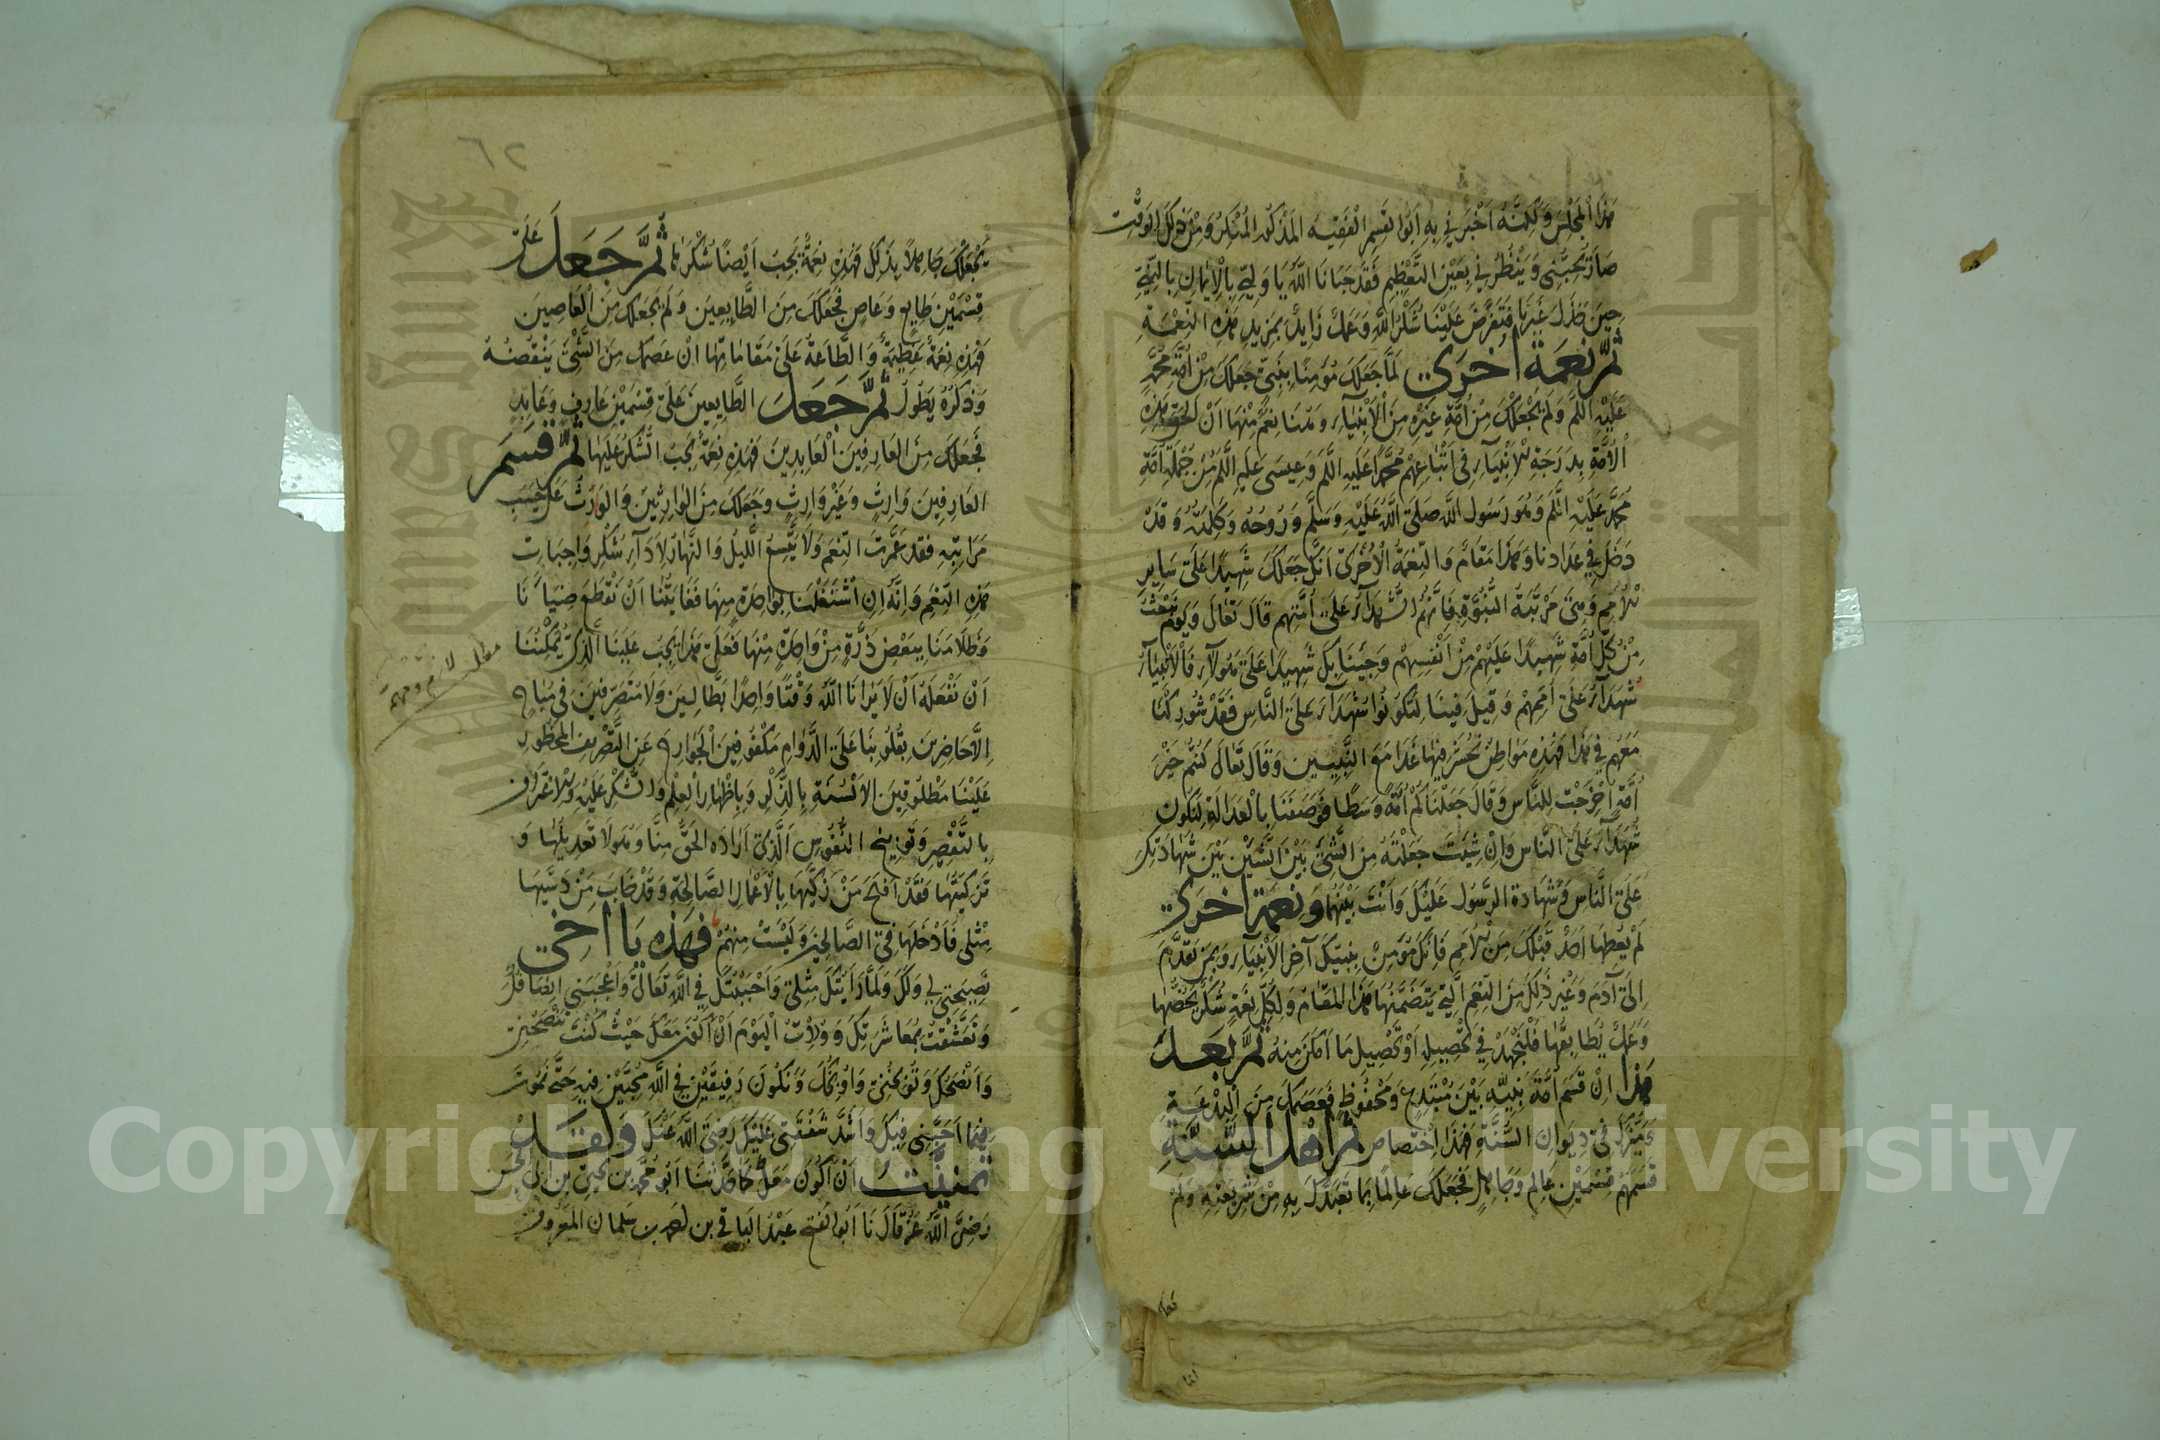 هَذَا الْمَجْلِسِ وَلَكِنَّهُ اَخْبَرَنِي بِهِ اَبُو القَسِمِ الْفَقِيه المَذْكُور المُنْكِرُ وَمِنْ ذلِكَ الوَقْتِ
صَارَ يُحِبُّنِي وَيَنْظُرُنِي بِعَيْنِ التَّعْظِيمِ فَقَدْ حَبَانَا اللَّهُ يَا وَلِيِّ بِالْاِيمَانِ بِالنَّبِيِّ
حِينَ خَذَلَ غَيْرَنَا فَتَفَرَّضَ عَلَيْنَا شُكْرُ اللَّهِ وَعَمَلٌ زَايِدٌ بِمَزِيدِ هَذِهِ النِّعْمَةِ
ثُمَّ نِعْمَةٌ اُخْرَى لَمَّا جَعَلَكَ مُؤْمِنًا بِنَبِيٍّ جَعَلَكَ مِنْ اُمَّةِ مُحَمَّدٍ
عَلَيْهِ السَّلَمُ وَلَمْ يَجْعَلْكَ مِنْ اُمَّةِ غَيْرِهِ مِنَ الْاَنْبِيَآءِ وَهُنَا نِعَمٌ مِنْهَا اَنْ اَلْحَقَ هَذِهِ
الْاُمَّةِ بِدَرَجَةِ الْاَنْبِيَآءِ فِي اتْبَاعِهِمْ مُحَمَّدًا عَلَيْهِ السَّلَمَ وَعِيسَى عَلَيْهِ السَّلَمُ مِنْ جُمْلَةِ اُمَّةِ
مُحَمَّدٍ عَلَيْهِ السَّلَمُ وَهُوَ رَسُولُ اللَّهِ صَلَّى اللَّهُ عَلَيْهِ وَسَلَّمَ وَرُوحُهُ وَكَلِمَتُهُ وَقَدْ
دَخَلَ فِي عِدَادِنَا وَهَذَا مَقَامٌ وَالنِّعْمَةُ الْاُخْرَى اَنَّكَ جَعَلَكَ شَهِيدًا عَلَى سَايِرِ
الْاُمَمِ وَهِيَ مَرْتَبَةُ النُّبُوَّةِ فَاِنَّهُمُ الشُّهَدَآءُ عَلَى اُمَّتِهِم قَالَ تَعَالَى وَيَوْمَ نَبْعَثُ
مِنْ كُلِّ اُمَّةٍ شَهِيدًا عَلَيْهِمْ مِنْ اَنْفُسِهِمْ وَجِئْنَا بِكَ شَهِيدًا عَلَى هَؤُلَآءِ فَالْاَنْبِيَآءُ
شُهَدَآءُ عَلَى اُمَمِهِمْ وَقِيلَ فِينَا لِتَكُونُوا شُهَدَآءَ عَلَى النَّاسِ فَقَدْ شُورِكْنَا
مَعَهُم فِي هَذَا فَهَذِهِ مَوَاطِنُ نُحْشَرُ فِيهَا غَدًا مَعَ النَّبِيِّينَ وَقَالَ تَعَالَى كُنْتُمْ خَيْرَ
اُمَّةٍ اُخْرِجَتْ لِلنَّاسِ وَقَالَ جَعَلْنَاكُمْ اُمَّةً وَسَطًا فَوَصَفَنَا بِالْعَدَالَةِ لِتَكُونَ
شُهَدَآءَ عَلَى النَّاسِ وَاِنْ شِئْتَ جَعَلْتَهُ مِنَ الشَّيْءِ بَيْنَ الشَّيْئَيْنِ بَيْنَ شَهَادَتِكَ
عَلَى النَّاسِ وَشَهَادَةِ الرَّسُولِ عَلَيْكَ وَاَنْتَ بَيْنَهُمَا وَنِعْمَةٌ اُخْرَى
لَمْ يُعْطَهَا اَحَدٌ قَبْلَكَ مِنَ الْاُمَمِ فَاِنَّكَ مُؤْمِنٌ بِنَبِيِّكَ آخِرِ الْاَنْبِيَآءِ وَبِمَنْ تَقَدَّمَ
اِلَى آدَمَ وَغَيْرِ ذَلِكَ مِنَ النِّعَمِ الَّتِي يَتَضَمَّنُهَا هَذَا الْمَقَامُ وَلِكُلِّ نِعْمَةٍ شُكْرٌ يَخُصُّهَا
وَعَمَلٌ يُطَابِقُهَا فَلْتَجْهَدْ فِي تَحْصِيلِهِ اَوْ تَحْصِيلِ مَا اَمْكَنَ مِنْهُ ثُمَّ بَعْدَ
هَذَا اِنْ قَسَمَ اُمَّةَ نَبِيِّهِ بَيْنَ مُبْتَدِعٍ وَمَحْفُوظٍ فَعَصَمَكَ مِنَ الْبِدْعَةِ
وَمَيَّزَكَ فِي دِيوَانِ السُّنَّةِ فَهَذَا اخْتِصَاصٌ ثُمَّ اَهْلُ السُّنَّةِ
قَسَمَهُمْ قِسْمَيْنِ عَالِمٍ وَجَاهِلٍ فَجَعَلَكَ عَالِمًا بِمَا تَعَبَّدَكَ بِهِ مِنْ شَرِيعَتِهِ وَلَمْ
٦٢
يَجْعَلْكَ جَاهِلًا بِذَلِكَ فَهَذِهِ نِعْمَةٌ يَجِبُ اَيْضًا شُكْرُهَا ثُمَّ جَعَلَ عَلَى
قِسْمَيْنِ طَايِعٍ وَعَاصٍ فَجَعَلَكَ مِنَ الطَّايِعِينَ وَلَمْ يَجْعَلْكَ مِنَ الْعَاصِينَ
فَهَذِهِ نِعْمَةٌ عَظِيمَةٌ وَالطَّاعَةُ عَلَى مَقَامَاتِهَا اَنْ عَصَمَكَ مِنَ الشَّيْءِ يَنْقُصُهُ
وَذِكْرُهُ يَطُولُ ثُمَّ جَعَلَ الطَّايِعِينَ عَلَى قِسْمَيْنِ عَارِفٍ وَعَابِدٍ
فَجَعَلَكَ مِنَ الْعَارِفِينَ الْعَابِدِينَ فَهَذِهِ نِعْمَةٌ يَجِبُ الشُّكْرُ عَلَيْهَا ثُمَّ قَسَمَ
العَارِفِينَ وَارِثٍ وَغَيْرِ وَارِثٍ وَجَعَلَكَ مِنَ الْوَارِثِينَ وَالْوِرْثُ عَلَى حَسَبِ
مَرَاتِبِهِ فَقَدْ عَمَّرَتِ النِّعَمُ وَلَا يَتَّسِعُ اللَّيْلُ وَالنَّهَارُ لِاَدَآءِ شُكْرِ وَاجِبَاتِ
هَذِهِ النِّعَمِ وَاِنَّهُ اِنِ اشْتَغَلْنَا بِوَاحِدَةٍ مِنْهَا فَغَايَتُنَا اَنْ نَقْطَعَ ضِيَاءَنَا
وَظَلَامَنَا بِبَعْضِ ذَرَّةٍ مِنْ وَاحِدَةٍ مِنْهَا فَعَلَى هَذَا يَجِبُ عَلَيْنَا الَّذِي يُمْكِنُنَا
اَنْ نَفْعَلَهُ اَنْ لَا يَرَانَا اللَّهُ وَقْتًا وَاحِدًا بَطَّالِينَ وَلَا مُتَصَرِّفِينَ فِي مُبَاحٍ
اِلَّا حَاضِرِينَ بِقُلُوبِنَا عَلَى الدَّوَامِ مَكْفُوفِينَ الْجَوَارِحِ عَنِ التَّصْرِيفِ المَحْظُورِ
عَلَيْنَا مُطْلِقِينَ الْاَلْسِنَةِ بِالذِّكْرِ وَبِاِظْهَارِ الْعِلْمِ وَالشُّكْرِ عَلَيْهِ وَالْاِعْتِرَافِ
بِالتَّقْصِيرِ وَتَوْبِيخِ النُّفُوسِ الَّذِي اَرَادَهُ الْحَقُّ مِنَّا وَهُوَ لَا تَعْدِيلَهَا وَ
تَزْكِيَتُهَا فَقَدْ اَفْلَحَ مَنْ زَكَّيهَا بِالْاَعْمَالِ الصَّالِحَةِ وَقَدْ خَابَ مَنْ دَسَّيهَا
مِثْلِي فَاَدْخَلَهَا فِي الصَّالِحِينَ وَلَيْسَتْ مِنْهُمْ فَهَذِهِ يَا اَخِي
نَصِيحَتِي لِي وَلَكَ وَلَمَّا رَاَيْتُكَ مِثْلِي وَاَحْبَبْتُكَ فِي اللَّهِ تَعَالَى وَاَعْجَبَنِي اِنْصَافُكَ
وَتَعَشَّقْتُ بِمُعَاشَرَتِكَ وَوَدِدْتُ الْيَوْمَ اَنْ اَكُونَ مَعَكَ حَيْثُ كُنْتَ تَنْصَحُنِي
وَاَنْصَحُكَ وَتُوَبِّخُنِي وَاُوَبِّخُكَ وَنَكُونَ رَفِيقَيْنِ فِي اللَّهِ مُحِبَّيْنِ فِيهِ حَتَّى نَمُوتَ
فَمَا اَحَبَّنِي فِيكَ وَاَشَدَّ شَفَقَتِي عَلَيْكَ رَضِيَ اللَّهُ عَنْكَ وَلَقَدْ
تَمَنَّيْتُ اَنْ اَكُونَ مَعَكَ كَمَا حَدَّثَنَا اَبُو مُحَمَّدِ بْنِ يَحْيَى بْنِ اَبِي الْحَسَنِ
رَضِيَ اللَّهُ عَنْهُ قَالَ نَا اَبُو الفَتْحِ عَبْدُ البَاقِي بْنِ اَحْمَد بْنِ سَلْمَان المَعْرُوف